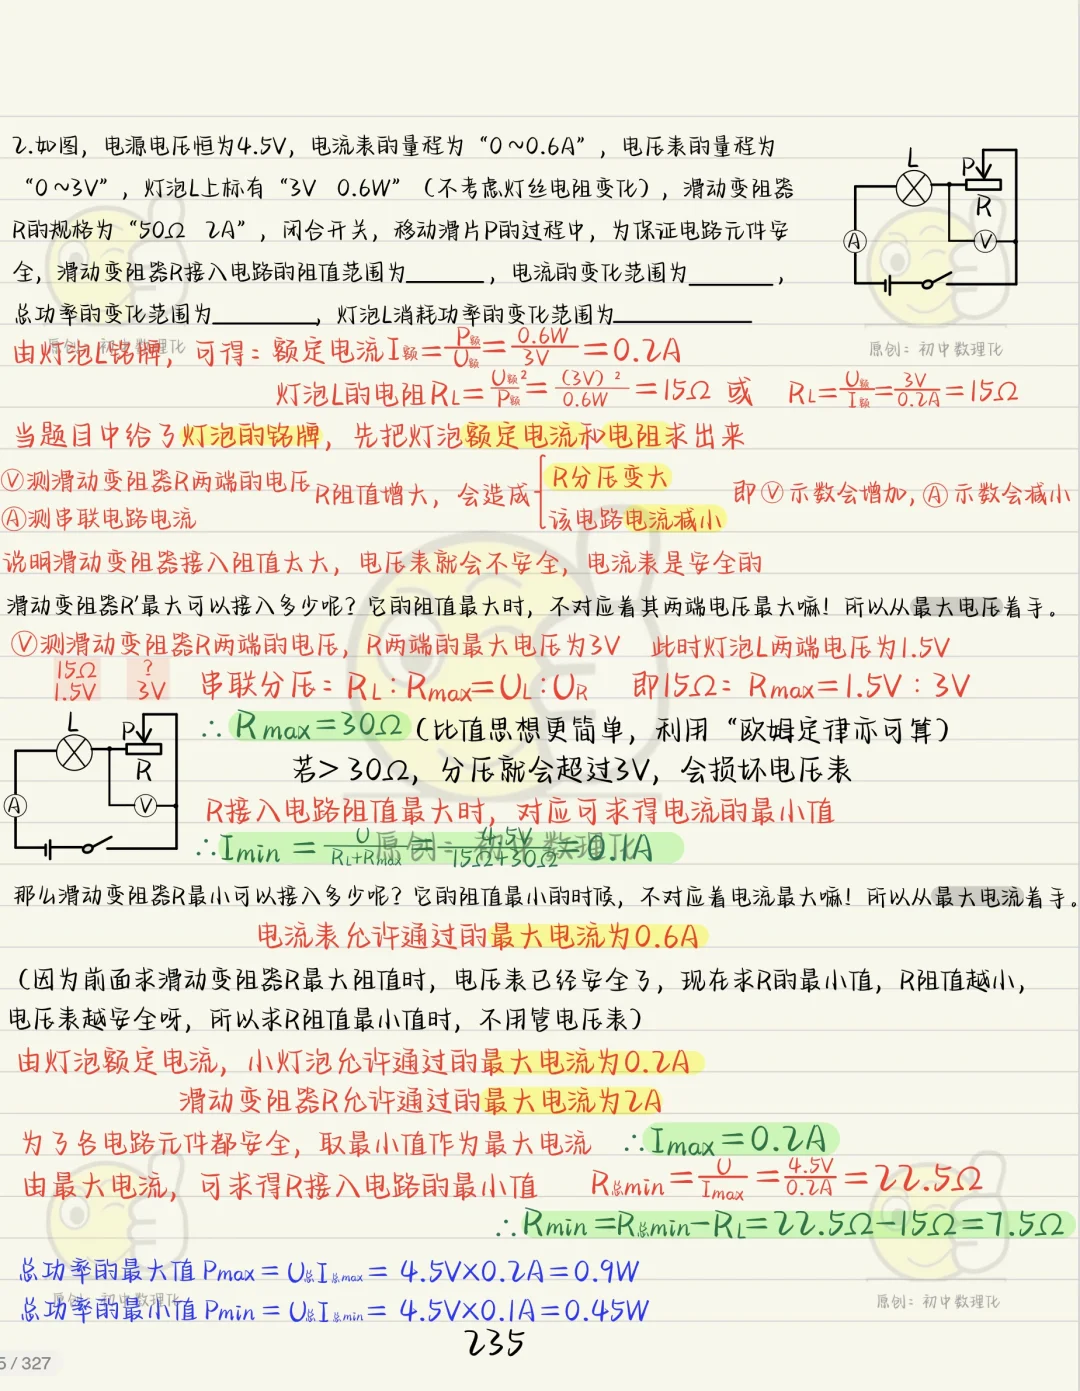 2.如图，电源电压恒为4.5V，电流表的量程为“0~0.6A”，电压表的量程为
“0~3V”，灯泡L上标有“3V 0.6W”（不考虑灯丝电阻变化），滑动变阻器
R的规格为“50Ω 2A”，闭合开关，移动滑片P的过程中，为保证电路元件安
全，滑动变阻器R接入电路的阻值范围为______，电流的变化范围为______，
总功率的变化范围为________，灯泡L消耗功率的变化范围为__________
L
P
R
A
V
原创：初中数理化
原创：初中数理化
由灯泡L铭牌，可得：额定电流I额=P额/U额=0.6W/3V=0.2A
灯泡L的电阻RL=U额²/P额=(3V)²/0.6W=15Ω 或 RL=U额/I额=3V/0.2A=15Ω
当题目中给了灯泡的铭牌，先把灯泡额定电流和电阻求出来
Ⓥ测滑动变阻器R两端的电压
Ⓐ测串联电路电流
R阻值增大，会造成
R分压变大
该电路电流减小
即Ⓥ示数会增加,Ⓐ示数会减小
说明滑动变阻器接入阻值太大，电压表就会不安全，电流表是安全的
滑动变阻器R'最大可以接入多少呢？它的阻值最大时，不对应着其两端电压最大嘛！所以从最大电压着手。
Ⓥ测滑动变阻器R两端的电压，R两端的最大电压为3V 此时灯泡L两端电压为1.5V
15Ω ?
1.5V 3V
串联分压：RL：Rmax=UL：UR 即15Ω：Rmax=1.5V：3V
∴Rmax=30Ω（比值思想更简单，利用“欧姆定律亦可算）
L
P
R
A
V
若>30Ω，分压就会超过3V，会损坏电压表
R接入电路阻值最大时，对应可求得电流的最小值
∴Imin=U/RL+Rmax=4.5V/15Ω+30Ω=0.1A
原创：初中数理化
那么滑动变阻器R最小可以接入多少呢？它的阻值最小的时候，不对应着电流最大嘛！所以从最大电流着手。
电流表允许通过的最大电流为0.6A
（因为前面求滑动变阻器R最大阻值时，电压表已经安全了，现在求R的最小值，R阻值越小，
电压表越安全呀，所以求R阻值最小值时，不用管电压表）
由灯泡额定电流，小灯泡允许通过的最大电流为0.2A
滑动变阻器R允许通过的最大电流为2A
为了各电路元件都安全，取最小值作为最大电流 ∴Imax=0.2A
由最大电流，可求得R接入电路的最小值 R总min=U/Imax=4.5V/0.2A=22.5Ω
∴Rmin=R总min-RL=22.5Ω-15Ω=7.5Ω
总功率的最大值Pmax=U总I总max=4.5V×0.2A=0.9W
原创：初中数理化
原创：初中数理化
总功率的最小值Pmin=U总I总min=4.5V×0.1A=0.45W
235
5/327